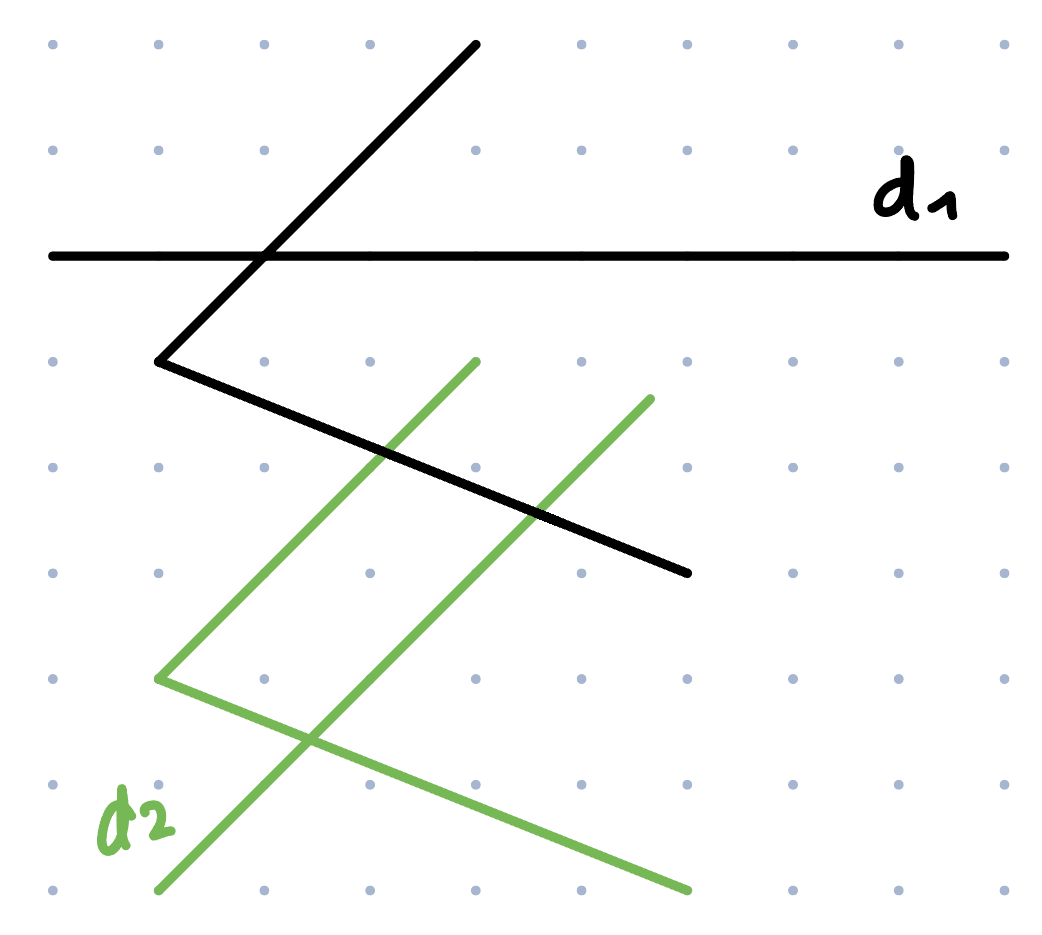 d1
d2